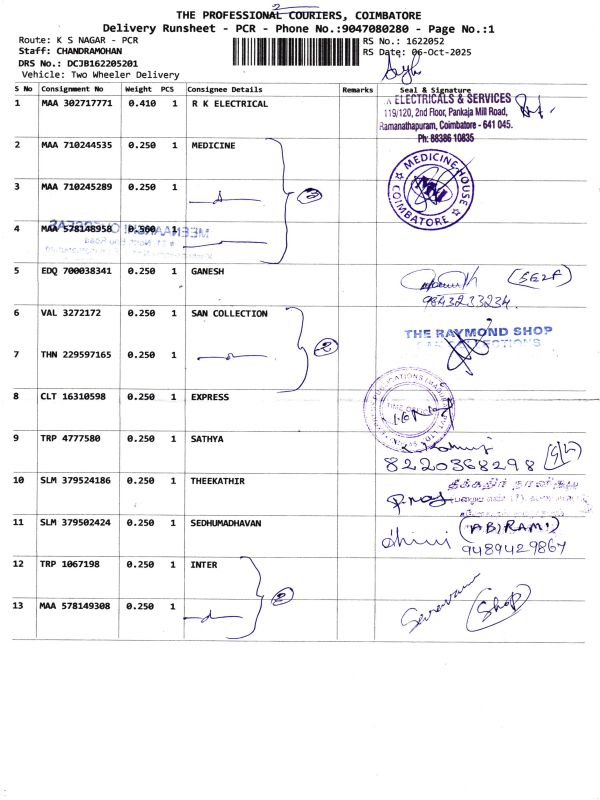 2
THE PROFESSIONAL COURIERS, COIMBATORE
Delivery Runsheet - PCR - Phone No.:9047080280 - Page No.:1
Route: K S NAGAR - PCR
RS No.: 1622052
Staff: CHANDRAMOHAN
RS Date: 06-Oct-2025
DRS No.: DCJB162205201
Vehicle: Two Wheeler Delivery
S No Consignment No Weight PCS Consignee Details Remarks Seal & Signature
1 MAA 302717771 0.410 1 R K ELECTRICAL
ELECTRICALS & SERVICES
119/120, 2nd Floor, Pankaja Mill Road,
Ramanathapuram, Coimbatore - 641 045.
Ph: 88386 10835
2 MAA 710244535 0.250 1 MEDICINE
MEDICINE HOUSE
COIMBATORE
3 MAA 710245289 0.250 1
3
4 MAA 578148958 0.500 1
5 EDQ 700038341 0.250 1 GANESH
(SELF)
9843233234.
6 VAL 3272172 0.250 1 SAN COLLECTION
THE RAYMOND SHOP
7 THN 229597165 0.250 1
2
8 CLT 16310598 0.250 1 EXPRESS
9 TRP 4777580 0.250 1 SATHYA
8220368298
10 SLM 379524186 0.250 1 THEEKATHIR
11 SLM 379502424 0.250 1 SEDHUMADHAVAN
(ABIRAMI)
9489429867
12 TRP 1067198 0.250 1 INTER
2
13 MAA 578149308 0.250 1
Saravana
Shop